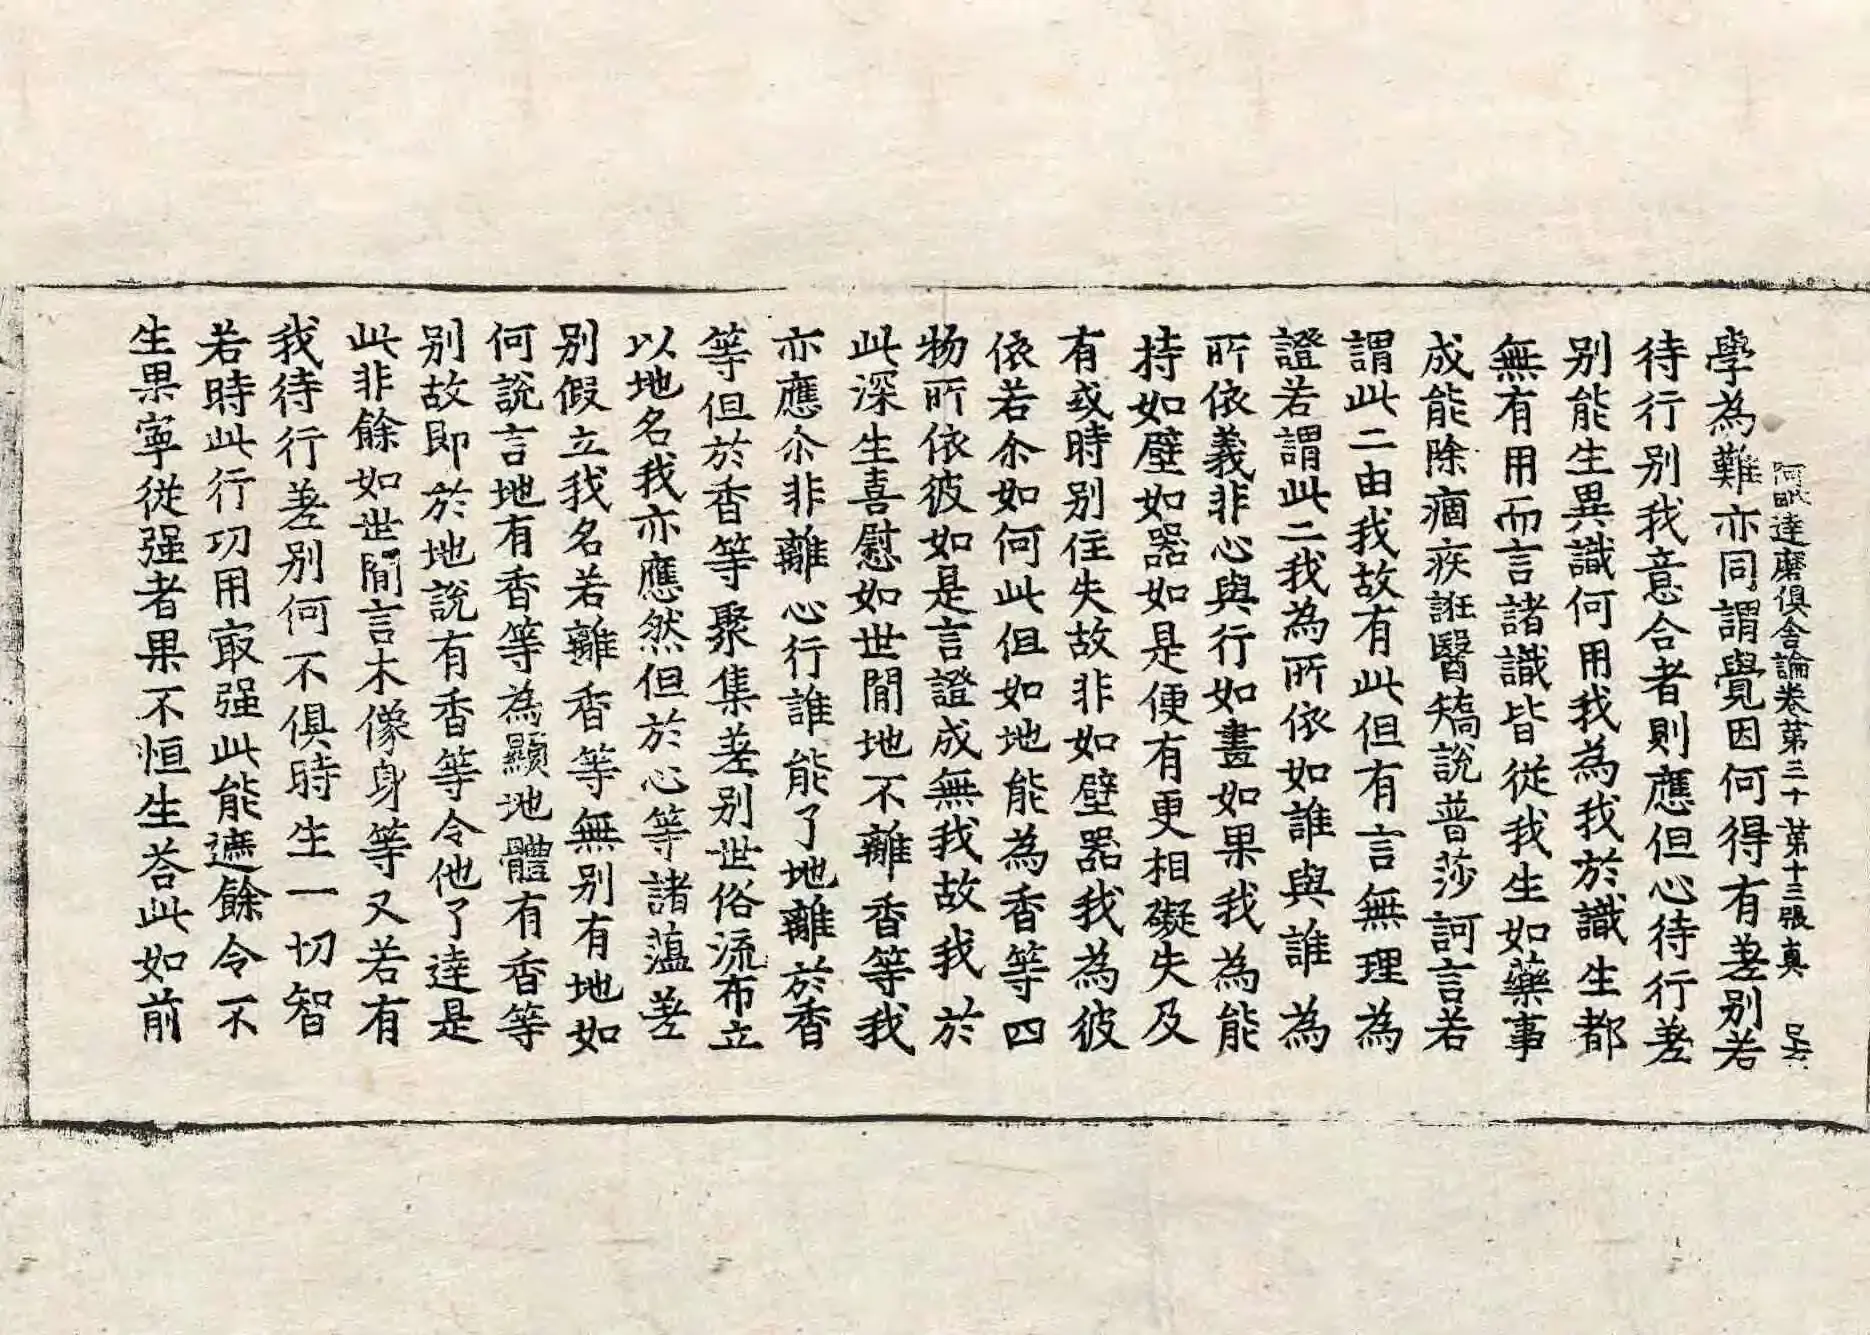 阿毗達磨俱舍論卷第三十 第十三張 真
學為難亦同謂覺因何得有差别若
待行别我意合者則應但心待行差
别能生異識何用我為我於識生都
無有用而言諸識皆從我生如藥事
成能除痼疾誑醫矯說普莎訶言若
謂此二由我故有此但有言無理為
證若謂此二我為所依如誰與誰為
所依義非心與行如畫如果我為能
持如壁如器如是便有更相礙失及
有或時别住失故非如壁器我為彼
依若尒如何此但如地能為香等四
物所依彼如是言證成無我故我於
此深生喜慰如世閒地不離香等我
亦應尒非離心行誰能了地離於香
等但於香等聚集差别世俗流布立
以地名我亦應然但於心等諸蘊差
别假立我名若離香等無别有地如
何說言地有香等為顯地體有香等
别故即於地說有香等令他了達是
此非餘如世閒言木像身等又若有
我待行差别何不俱時生一切智
若時此行功用㝡强此能遮餘令不
生果寧從强者果不恒生荅此如前